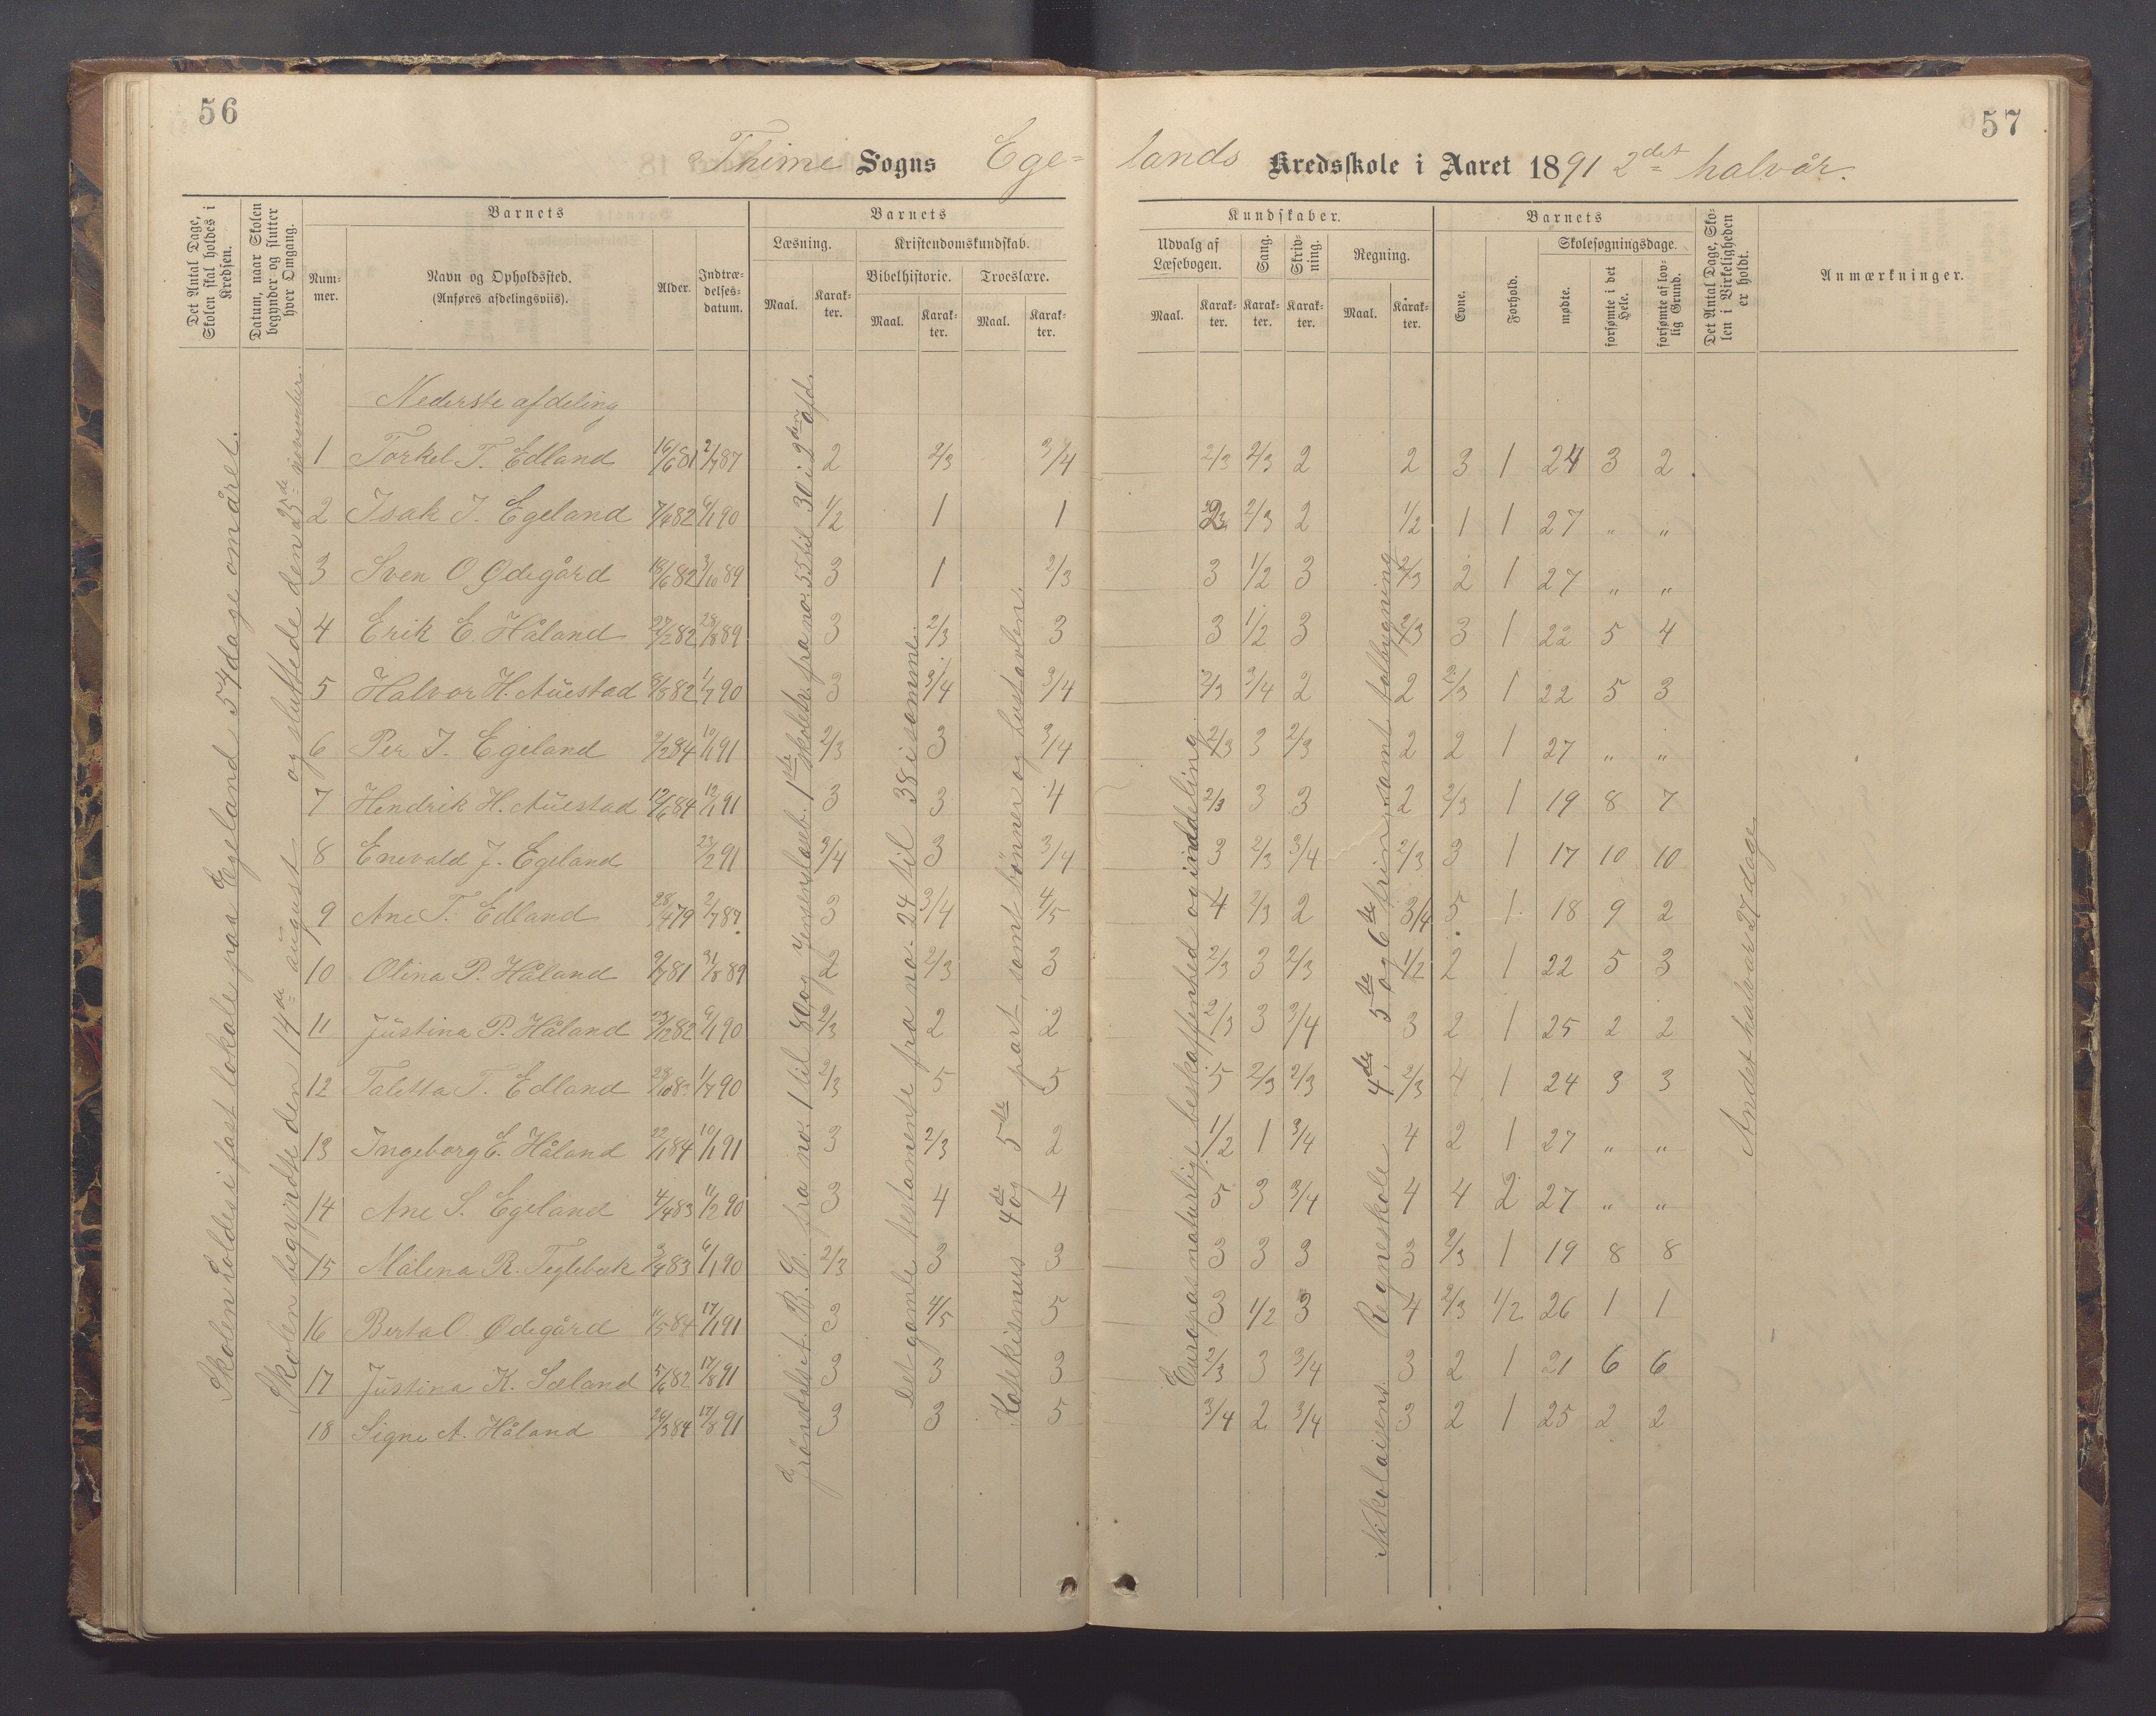 56
57
Thime Sogns Ege=
lands Kredsskole i Aaret 1891 2det halvår.
Det Antal Dage, Skolen skal holdes i Kredsen.
Datum, naar Skolen begynder og slutter hver Omgang.
Barnets
Num-mer.
Navn og Opholdssted.
(Anføres afdelingsviis).
Alder.
Indtræ-delses-datum.
Barnets
Læsning.
Maal.
Karak-ter.
Kristendomskundskab.
Bibelhistorie.
Maal.
Karak-ter.
Troeslære.
Maal.
Karak-ter.
Kundskaber.
Udvalg af Læsebogen.
Maal.
Karak-ter.
Sang.
Karak-ter.
Skriv-ning.
Karak-ter.
Regning.
Maal.
Karak-ter.
Barnets
Evne.
Forhold.
Skolesøgningsdage.
mødte.
forsømte i det Hele.
forsømte af lov-lig Grund.
Det Antal Dage, Sko-len i Virkeligheden er holdt.
Anmærkninger.
Skolen holdes i fast lokale paa Egeland 54 dage om året.
Skolen begyndte den 14de august og sluttede den 25de november.
Nederste afdeling
1 Torkel T. Edland 16/6 81 2/7 87 2 2/3 3/4 2/3 2/3 2 2 3 1 24 3 2
2 Isak J. Egeland 7/4 82 6/1 90 1/2 1 1 2/3 2 1/2 1 1 27 „ „
3 Sven O. Ødegård 18/6 82 3/10 89 3 1 2/3 3 1/2 3 2/3 2 1 27 „ „
4 Erik E. Håland 82 28/8 89 3 2/3 3 3 1/2 3 2/3 3 1 22 5 4
5 Halvor H. Auestad 8/8 82 1/7 90 3 3/4 3/4 2/3 3/4 2 2 2/3 1 22 5 3
6 Per J. Egeland 9/2 84 10/1 91 2/3 3 3/4 2/3 3 2/3 2 2 1 27 „ „
7 Hendrik H. Auestad 12/6 84 12/1 91 3 3 4 2/3 3 3 2 2/3 1 19 8 7
8 Enevald J. Egeland 23/2 91 3/4 3 3/4 3 2/3 3/4 2/3 3 1 17 10 10
9 Ane T. Edland 28/4 79 2/7 87. 3 3/4 4/5 4 2/3 2 3/4 5 1 18 9 2
10 Olina P. Håland 9/7 81 31/8 89 2 2/3 3 2/3 3 2/3 1/2 2 1 22 5 3
11 Justina P. Håland 23/12 82 6/1 90 2/3 2 2 2/3 3 3/4 3 2 1 25 2 2
12 Taletta T. Edland 1/7 90 2/3 5 5 5 2/3 2/3 2/3 4 1 24 3 3
13 Ingeborg E. Håland 22/1 84 10/1 91 3 2/3 2 1/2 1 3/4 4 2 1 27 „ „
14 Ane S. Egeland 4/4 83 11/2 90 3 4 4 5 3 3/4 4 4 2 27 „ „
15 Målena R. Teglebæk 83 6/1 90 2/3 3 3 3 3 3 3 2/3 1 19 8 8
16 Berta O. Ødegård 11/5 84 17/1 91 3 4/5 5 3 1/2 3 4 2/3 1/2 26 1 1
17 Justina K. Sæland 5/6 82 17/8 91 3 3 3 2/3 3 3/4 3 2 1 21 6 6
18 Signe A. Håland 26/3 84 17/8 91 3 3 5 3/4 2 3/4 3 2 1 25 2 2
Grönsdalset. B. H. fra no. 1 til 80 og Jensens læseb. 1ste skoletr. fra no. 55 til 30 i 2den afd.
Det gamle testamente fra no. 24 til 38 i samme.
Katekismus 4de og 5te part, samt bönner og hustavlen.
Europas naturlige beskaffenhed og inddeling
Nikolaisens Regneskole 4de, 5te og 6te trin, samt talbygning
Andet halvår 27 dage